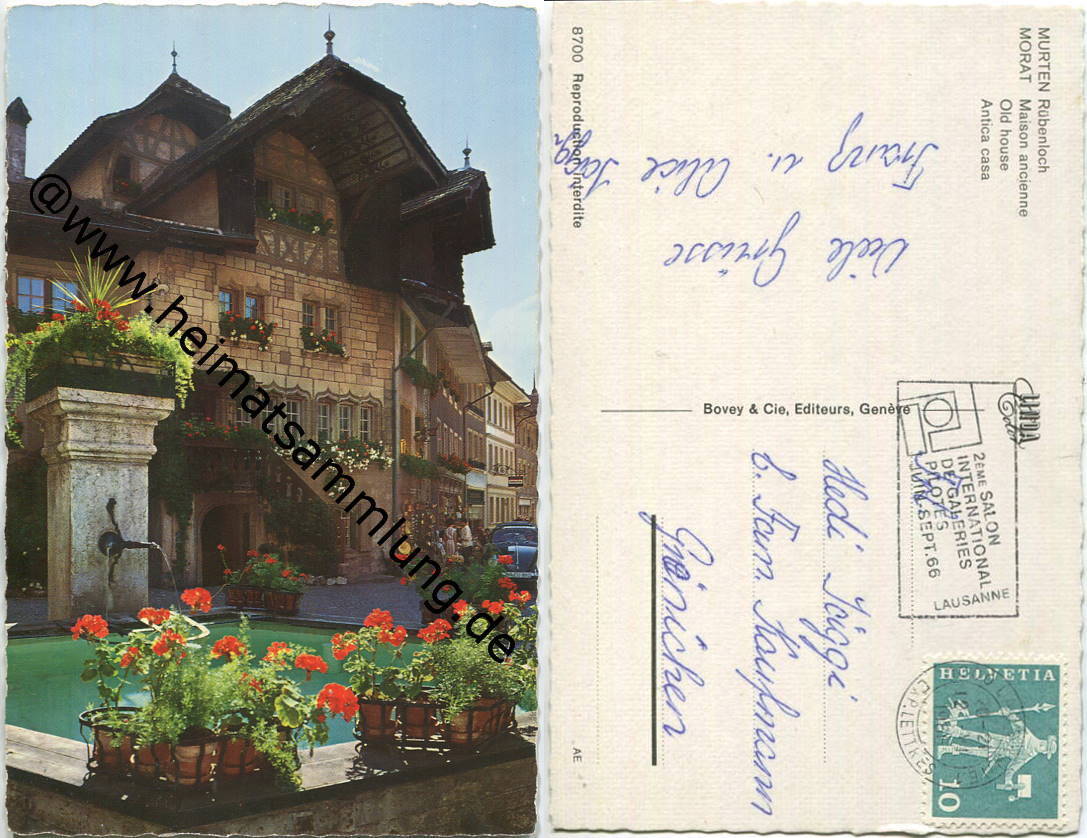 @www.heimatsammlung.de
MURTEN Rübenloch
MORAT Maison ancienne
Old house
Antica casa
8700 Reproduction interdite
Viele Grüsse
Franz u. Alice Jäggi
Bovey & Cie, Editeurs, Genève
2ÈME SALON
INTERNATIONAL
DE GALERIES
PILOTES
JUIN-SEPT. 66
LAUSANNE
HELVETIA
10
Hedi Jäggi
b. Fam. Kaufmann
Gränichen
AE